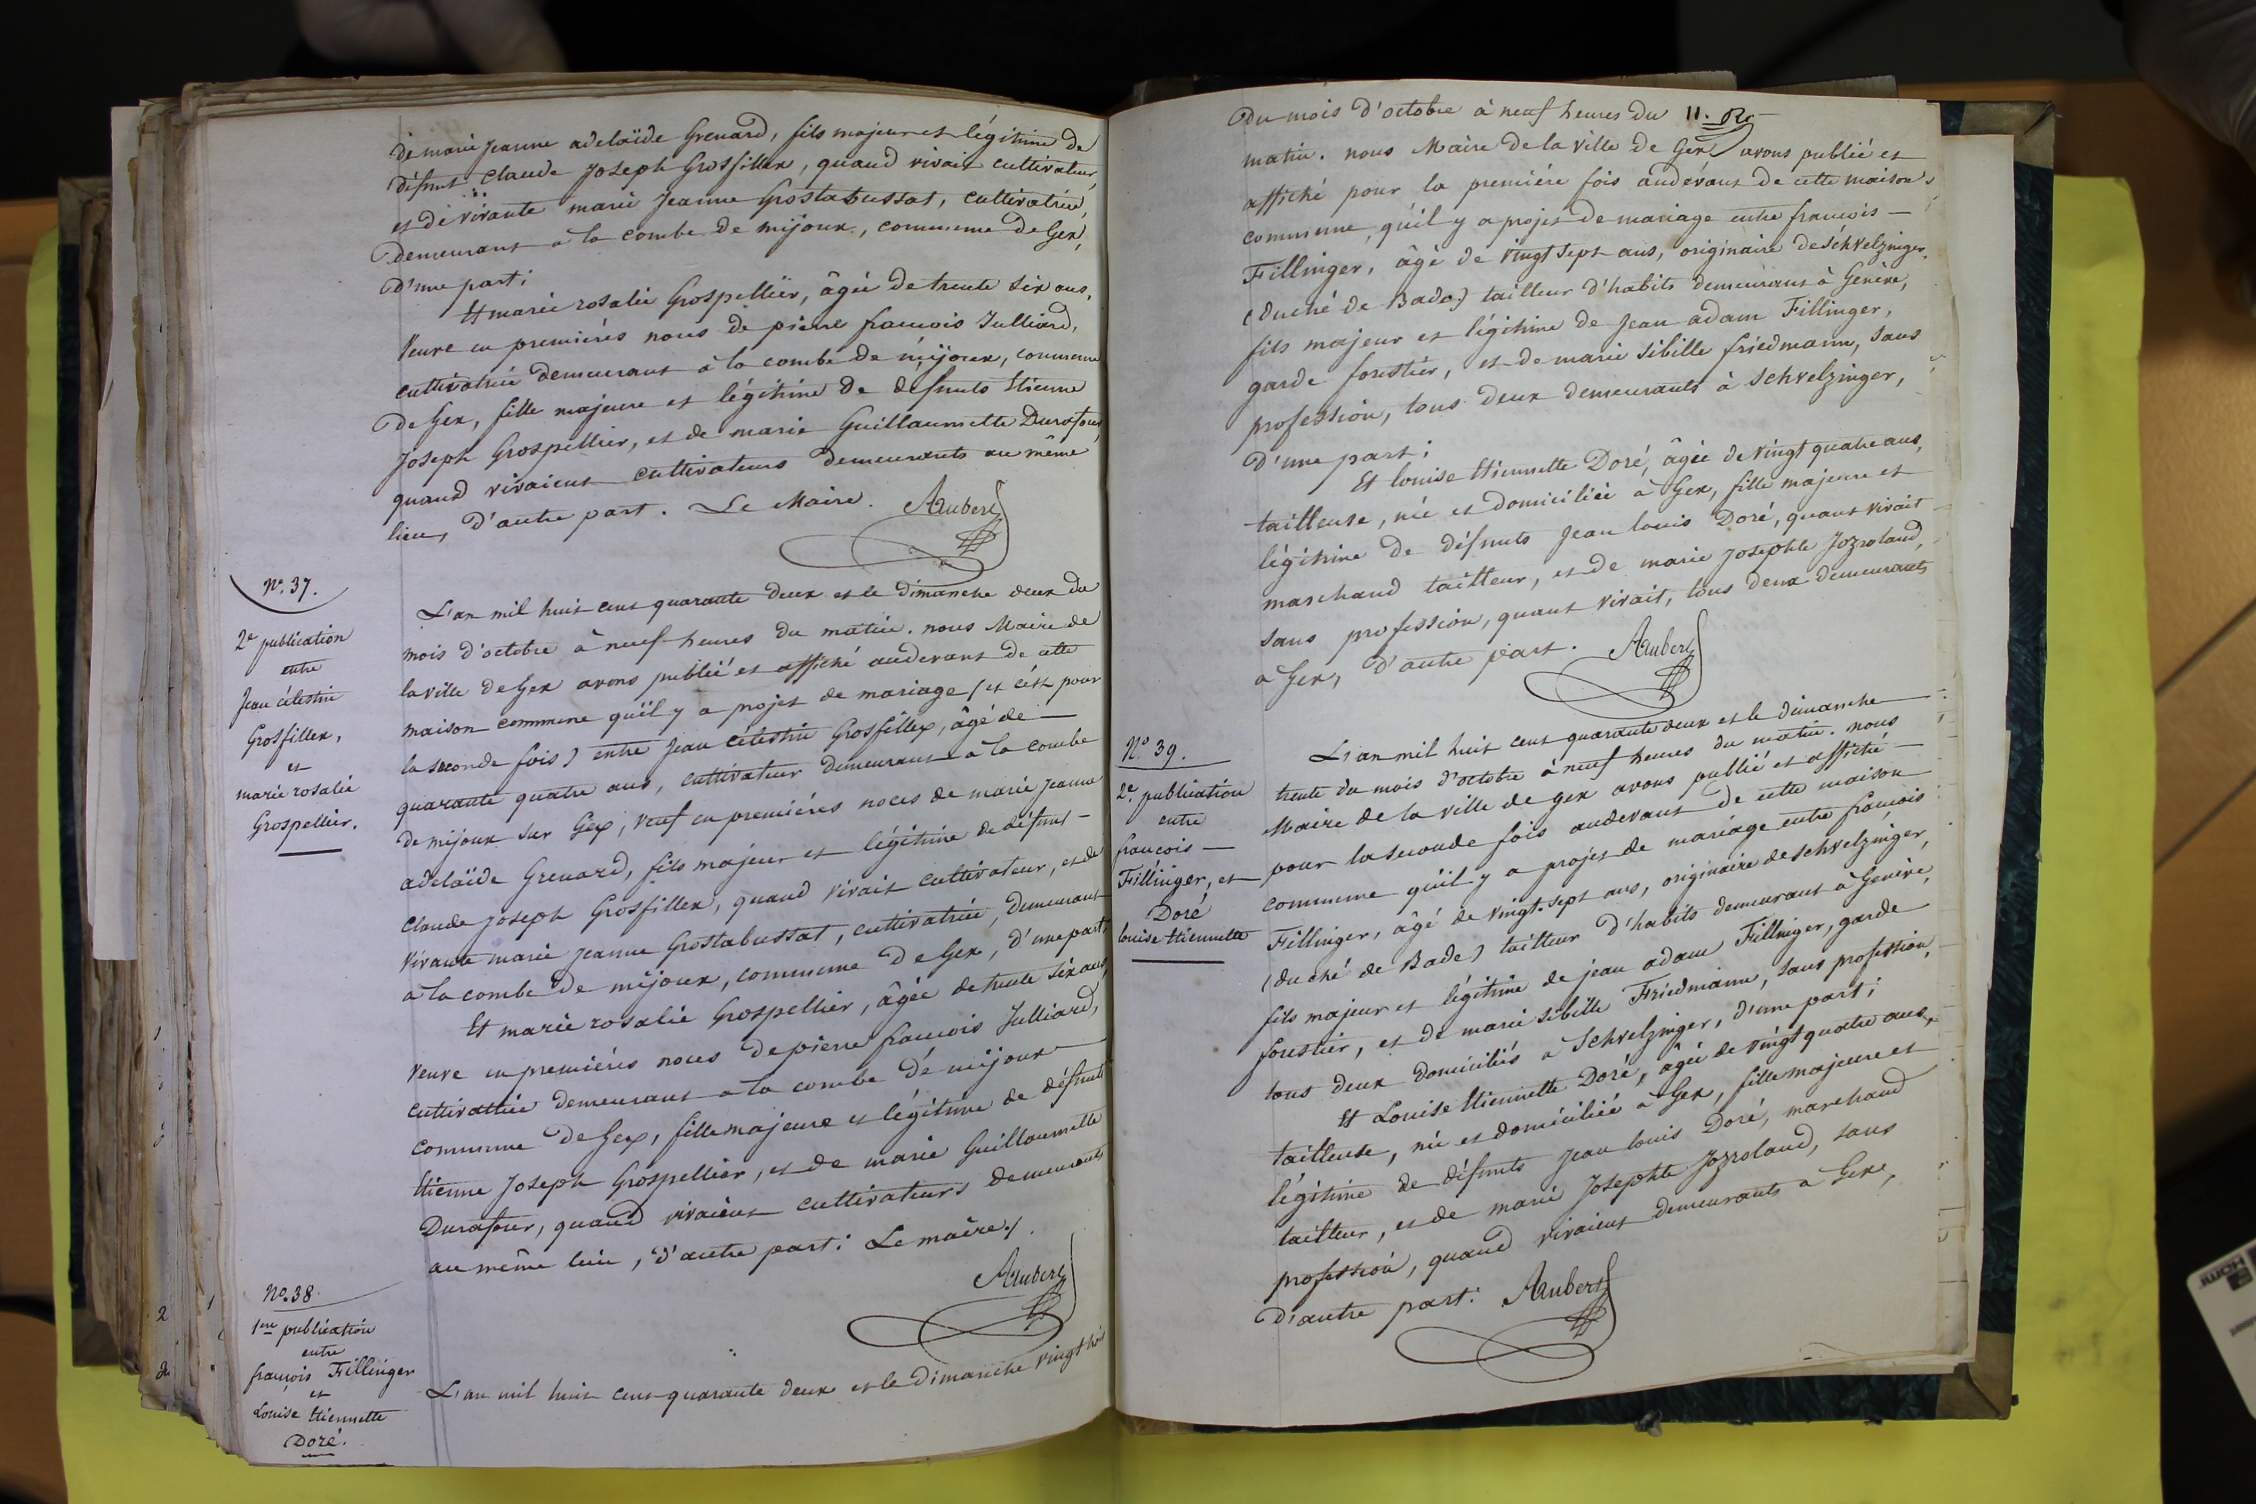 de marie jeanne adelaïde Grenard, fils majeur et légitime de
défunt Claude Joseph Grosfillex, quand vivait cultivateur,
et de vivante marie Jeanne Grostabussat, cultivatrice,
demeurant à la combe de mijoux, commune de Gex,
d'une part;
Et marie rosalie Grospellier, âgée de trente six ans,
veuve en premières noces de pierre françois Julliard,
cultivatrice demeurant à la combe de mijoux, commune
de Gex, fille majeure et légitime de défunts Etienne
Joseph Grospellier, et de marie Guillaumette Durafour,
quand vivaient cultivateurs demeurants au même
lieu, d'autre part. Le Maire. Aubert
N°. 37.
2e publication
entre
Jean célestin
Grosfillex,
et
marie rosalie
Grospellier.
L'an mil huit cent quarante deux et le dimanche deux du
mois d'octobre à neuf heures du matin. nous Maire de
la ville de Gex avons publié et affiché audevant de cette
maison commune qu'il y a projet de mariage (et c'est pour
la seconde fois) entre jean célestin Grosfillex, âgé de
quarante quatre ans, cultivateur demeurant à la combe
de mijoux sur Gex, veuf en premières noces de marie jeanne
adelaïde Grenard, fils majeur et légitime de défunt
Claude Joseph Grosfillex, quand vivait cultivateur, et de
vivante marie jeanne Grostabussat, cultivatrice, demeurant
à la combe de mijoux, commune de Gex, d'une part;
Et marie rosalie Grospellier, âgée de trente six ans,
veuve en premières noces de pierre françois Julliard,
cultivatrice demeurant à la combe de mijoux
commune de Gex, fille majeure et légitime de défunts
Etienne Joseph Grospellier, et de marie Guillaumette
Durafour, quand vivaient cultivateurs demeurants
au même lieu, d'autre part: Le maire.
Aubert
No. 38.
1ere publication
entre
françois Fillinger
et
Louise Etiennette
Doré.
L'an mil huit cent quarante deux et le Dimanche vingt trois
du mois d'octobre à neuf heures du 11.
matin. nous Maire de la ville de Gex avons publié et
affiché pour la première fois audevant de cette maison
commune, qu'il y a projet de mariage entre françois
Fillinger, âgé de vingt sept ans, originaire de schvelzinger,
(Duché de Bade) tailleur d'habits demeurant à Genève,
fils majeur et légitime de Jean adam Fillinger,
garde forestier, et de marie sibille friedmann, sans
profession, tous deux demeurants à Schvelzinger,
d'une part;
Et louise Etiennette Doré, âgée de vingt quatre ans,
tailleuse, née et domiciliée à Gex, fille majeure et
légitime de défunts Jean louis Doré, quant vivait
marchand tailleur, et de marie Josephte Jozroland,
sans profession, quant vivait, tous deux demeurants
à Gex, d'autre part. Aubert
N°. 39.
2e. publication
entre
françois
Fillinger, et
Doré
louise Etiennette
L'an mil huit cent quarante deux et le dimanche
trente du mois d'octobre à neuf heures du matin. nous
Maire de la ville de gex avons publié et affiché
pour la seconde fois audevant de cette maison
commune qu'il y a projet de mariage entre françois
Fillinger, âgé de vingt-sept ans, originaire de schvelzinger,
(duché de Bade) tailleur d'habits demeurant à Genève,
fils majeur et légitime de jean adam Fillinger, garde
forestier, et de marie sibille Friedmann, sans profession,
tous deux domiciliés à Schvelzinger, d'une part;
Et Louise Etiennette Doré, âgée de vingt quatre ans,
tailleuse, née et domiciliée à Gex, fille majeure et
légitime de défunts Jean louis Doré, marchand
tailleur, et de marie Josephte Jozroland, sans
profession, quand vivaient demeurants à Gex,
d'autre part: Aubert